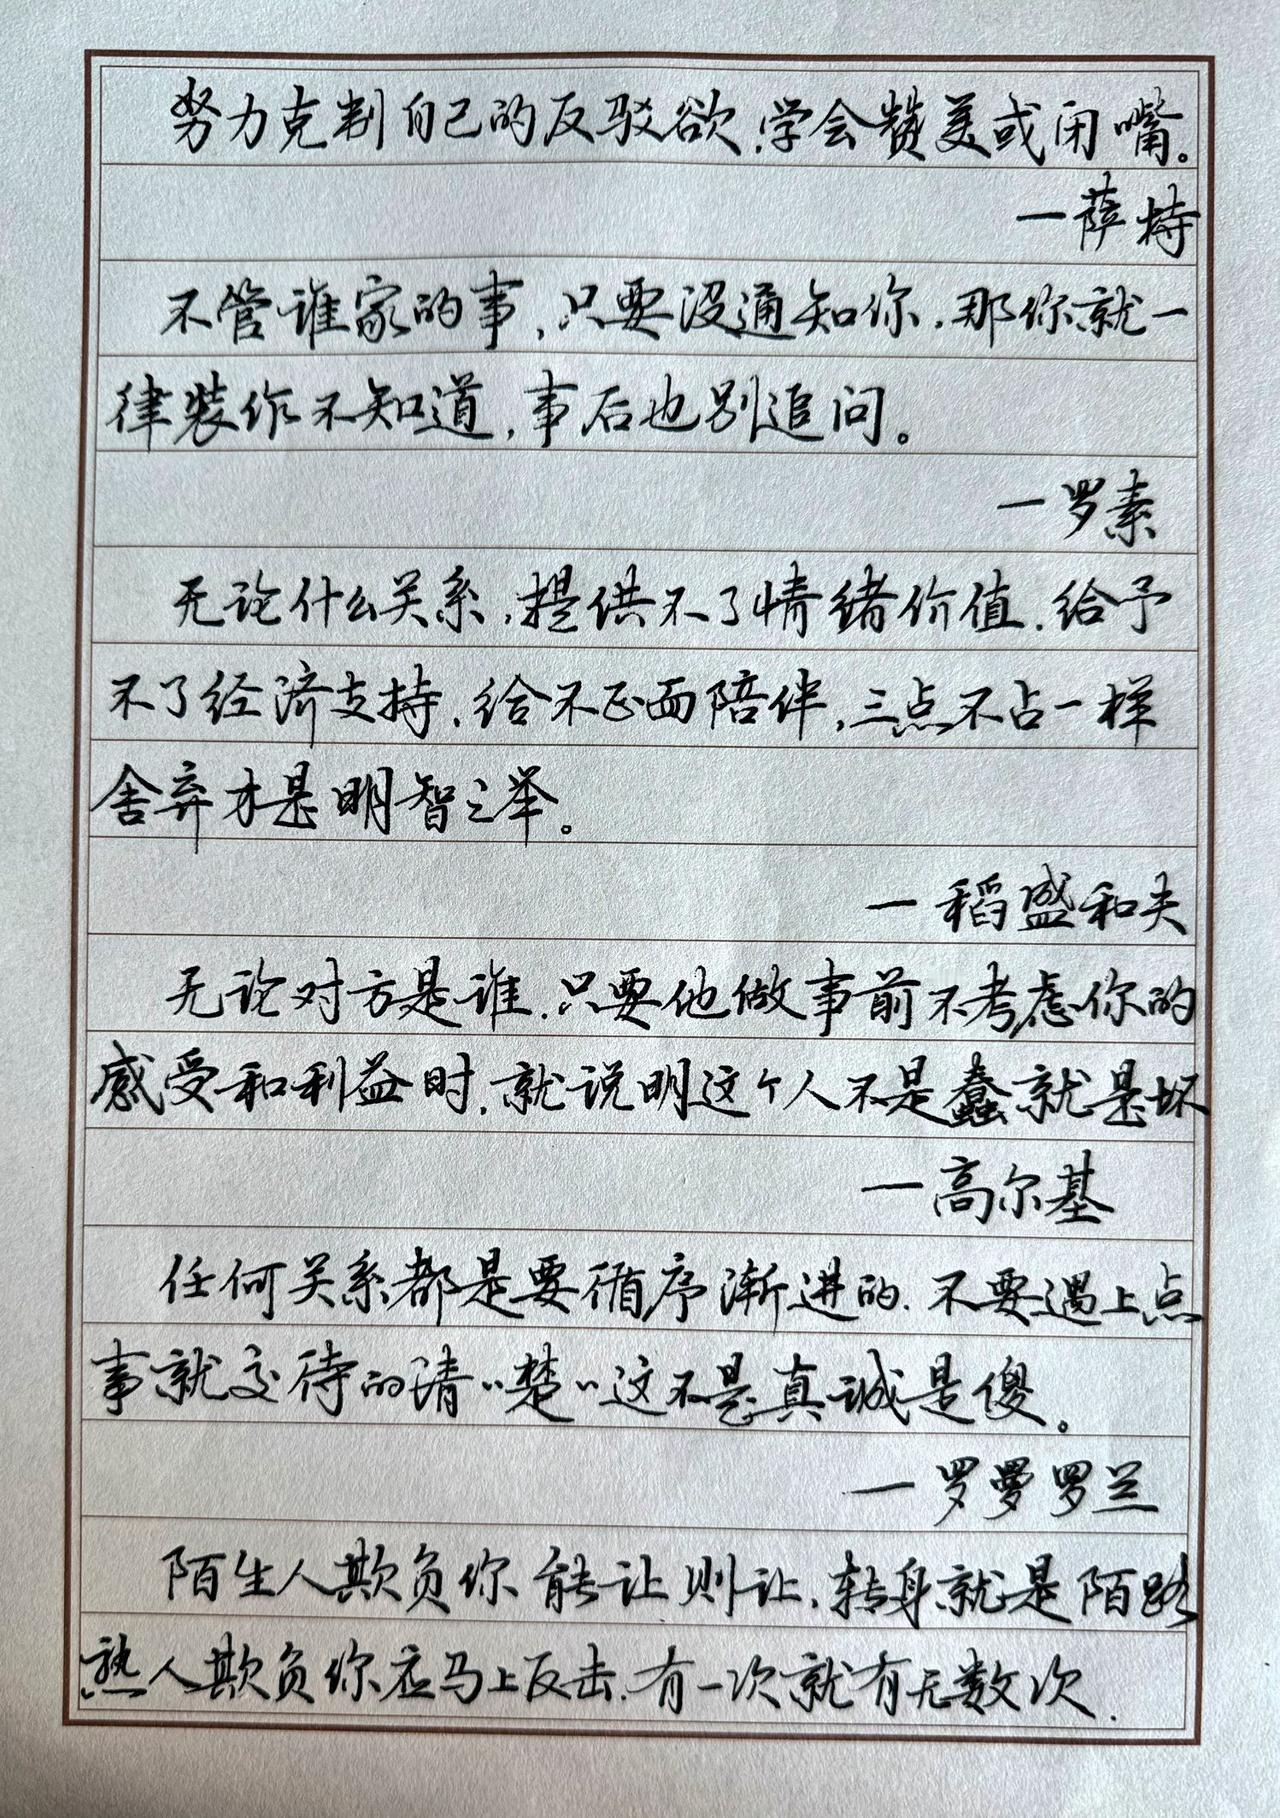 努力克制自己的反驳欲,学会赞美或闭嘴。
一萨特
不管谁家的事,只要没通知你,那你就一
律装作不知道,事后也别追问。
一罗素
无论什么关系,提供不了情绪价值,给予
不了经济支持,给不正面陪伴,三点不占一样
舍弃才是明智之举。
一稻盛和夫
无论对方是谁,只要他做事前不考虑你的
感受和利益时,就说明这个人不是蠢就是坏
一高尔基
任何关系都是要循序渐进的,不要遇上点
事就交待的清"楚"这不是真诚是傻。
一罗曼罗兰
陌生人欺负你能让则让,转身就是陌路
熟人欺负你应马上反击,有一次就有无数次.